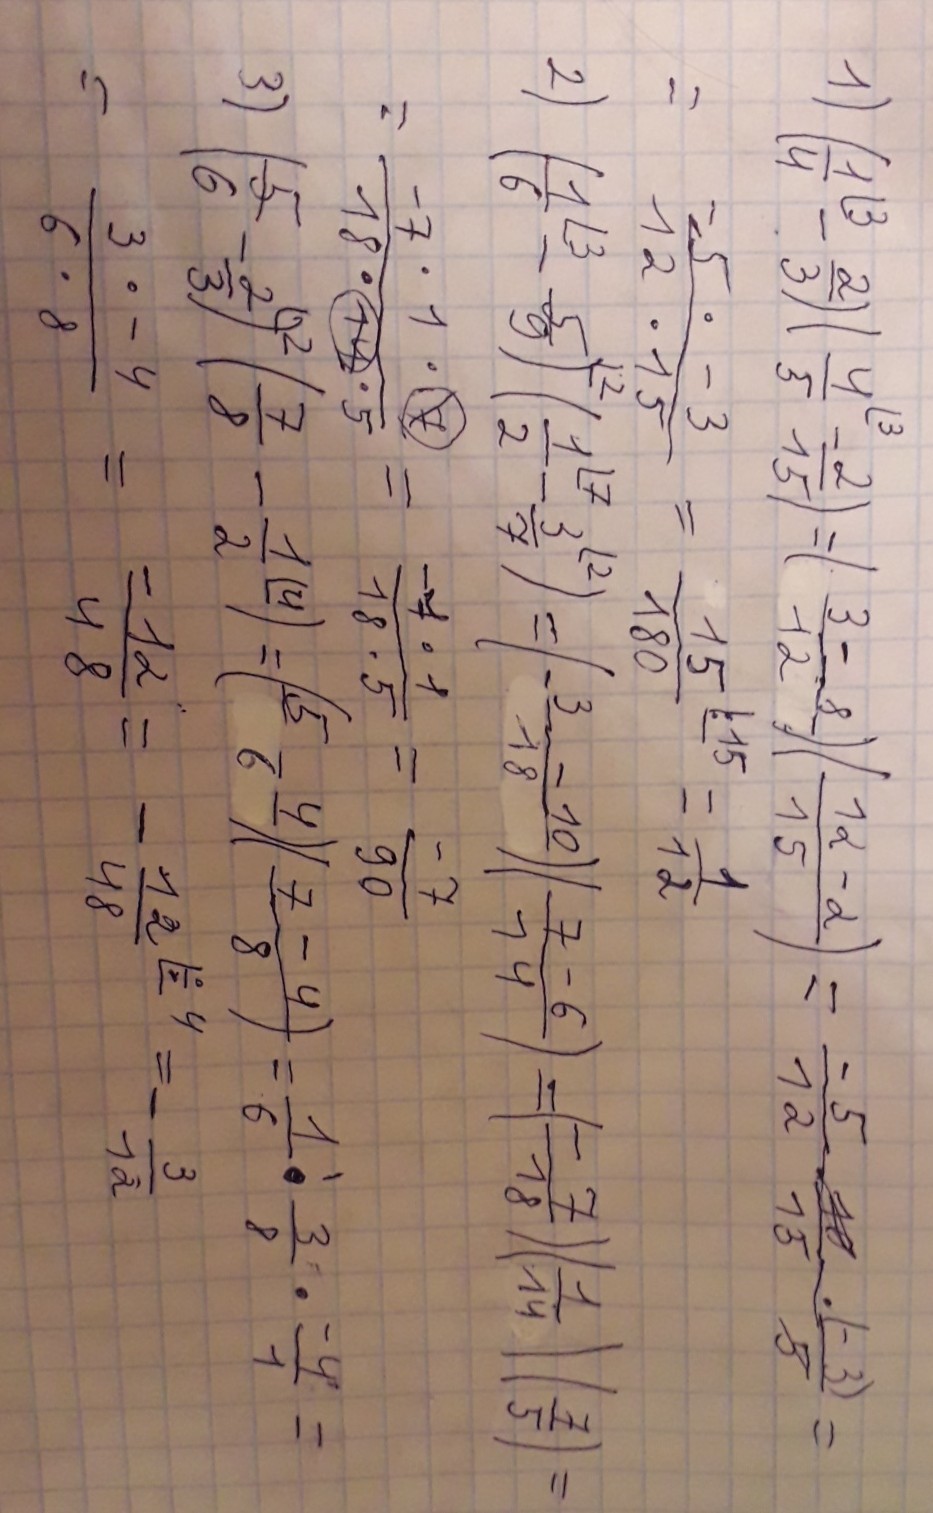 1) (1/4⌊3 - 2/3)(4/5⌊3 - 2/15) = (3-8/12)(12-2/15) = -5/12 · 15 · (-3)/5 =
= -5 · -3 / 12 · 15 = 15/180 ⌊:15 = 1/12
2) (1/6⌊3 - 5/9⌊2)(1/2⌊7 - 3/7⌊2) = (3-10/18)(7-6/14) = (-7/18)(1/14)(7/5) =
= -7 · 1 · 7 / 18 · 14 · 5 = · 1 / 18 · 5 = -7/90
3) (5/6 - 2/3⌊2)(7/8 - 1/2⌊4) = (5-4/6)(7-4/8) = 1/6 · 3/8 · -4/1 =
= 3 · -4 / 6 · 8 = -12/48 = - 12/48 ⌊:4 = - 3/12